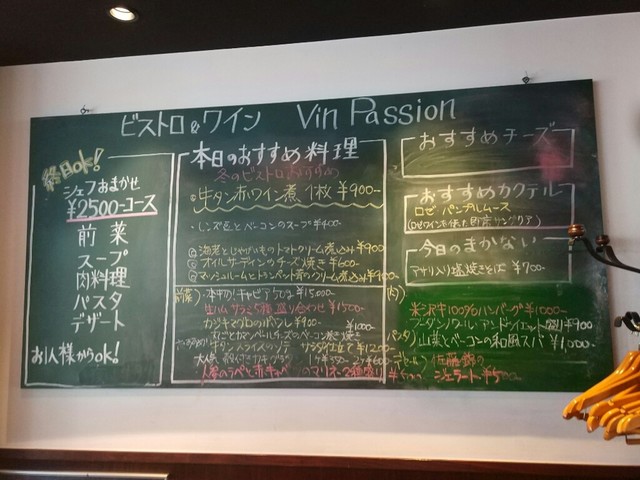 ビストロ&ワイン Vin Passion
終日ok!
シェフおまかせ
¥2500-コース
前菜
スープ
肉料理
パスタ
デザート
お1人様からok!
本日のおすすめ料理
冬のビストロおすすめ
牛タン赤ワイン煮 1枚 ¥900-
レンズ豆とベーコンのスープ ¥400-
海老とじゃがいものトマトクリーム煮込み ¥900
オイルサーディンのチーズ焼き ¥600-
¥900
前菜)
¥15,000-
生ハム サラミ5種 盛り合わせ ¥1500-
カジキマグロの ¥900-
¥1000-
¥1200-
おすすめチーズ
おすすめカクテル
ロゼ パンプルムース
(ロゼワインを使った即席サングリア)
今日のまかない
アサリ入り塩焼きそば ¥700-
肉)
米沢牛100%ハンバーグ ¥1000-
ブーダンノワール ¥900
パスタ) 山菜とベーコンの和風スパ ¥1,000-
佐藤錦の
ジェラート ¥500-